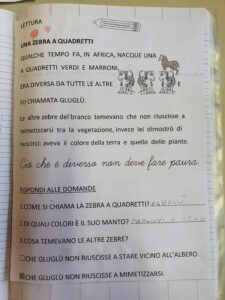 LETTURA
UNA ZEBRA A QUADRETTI
QUALCHE TEMPO FA, IN AFRICA, NACQUE UNA
A QUADRETTI VERDI E MARRONI.
ERA DIVERSA DA TUTTE LE ALTRE E
FU CHIAMATA GLUGLÙ.
Le altre zebre del branco temevano che non riuscisse a
mimetizzarsi tra la vegetazione, invece lei dimostrò di
riuscirci: aveva il colore della terra e quello delle piante.
Ciò che è diverso non deve fare paura.
RISPONDI ALLE DOMANDE
1.COME SI CHIAMA LA ZEBRA A QUADRETTI?
2.DI QUALI COLORI È IL SUO MANTO?
3.COSA TEMEVANO LE ALTRE ZEBRE?
CHE GLUGLÙ NON RIUSCISSE A STARE VICINO ALL'ALBERO.
CHE GLUGLÙ NON RIUSCISSE A MIMETIZZARSI.